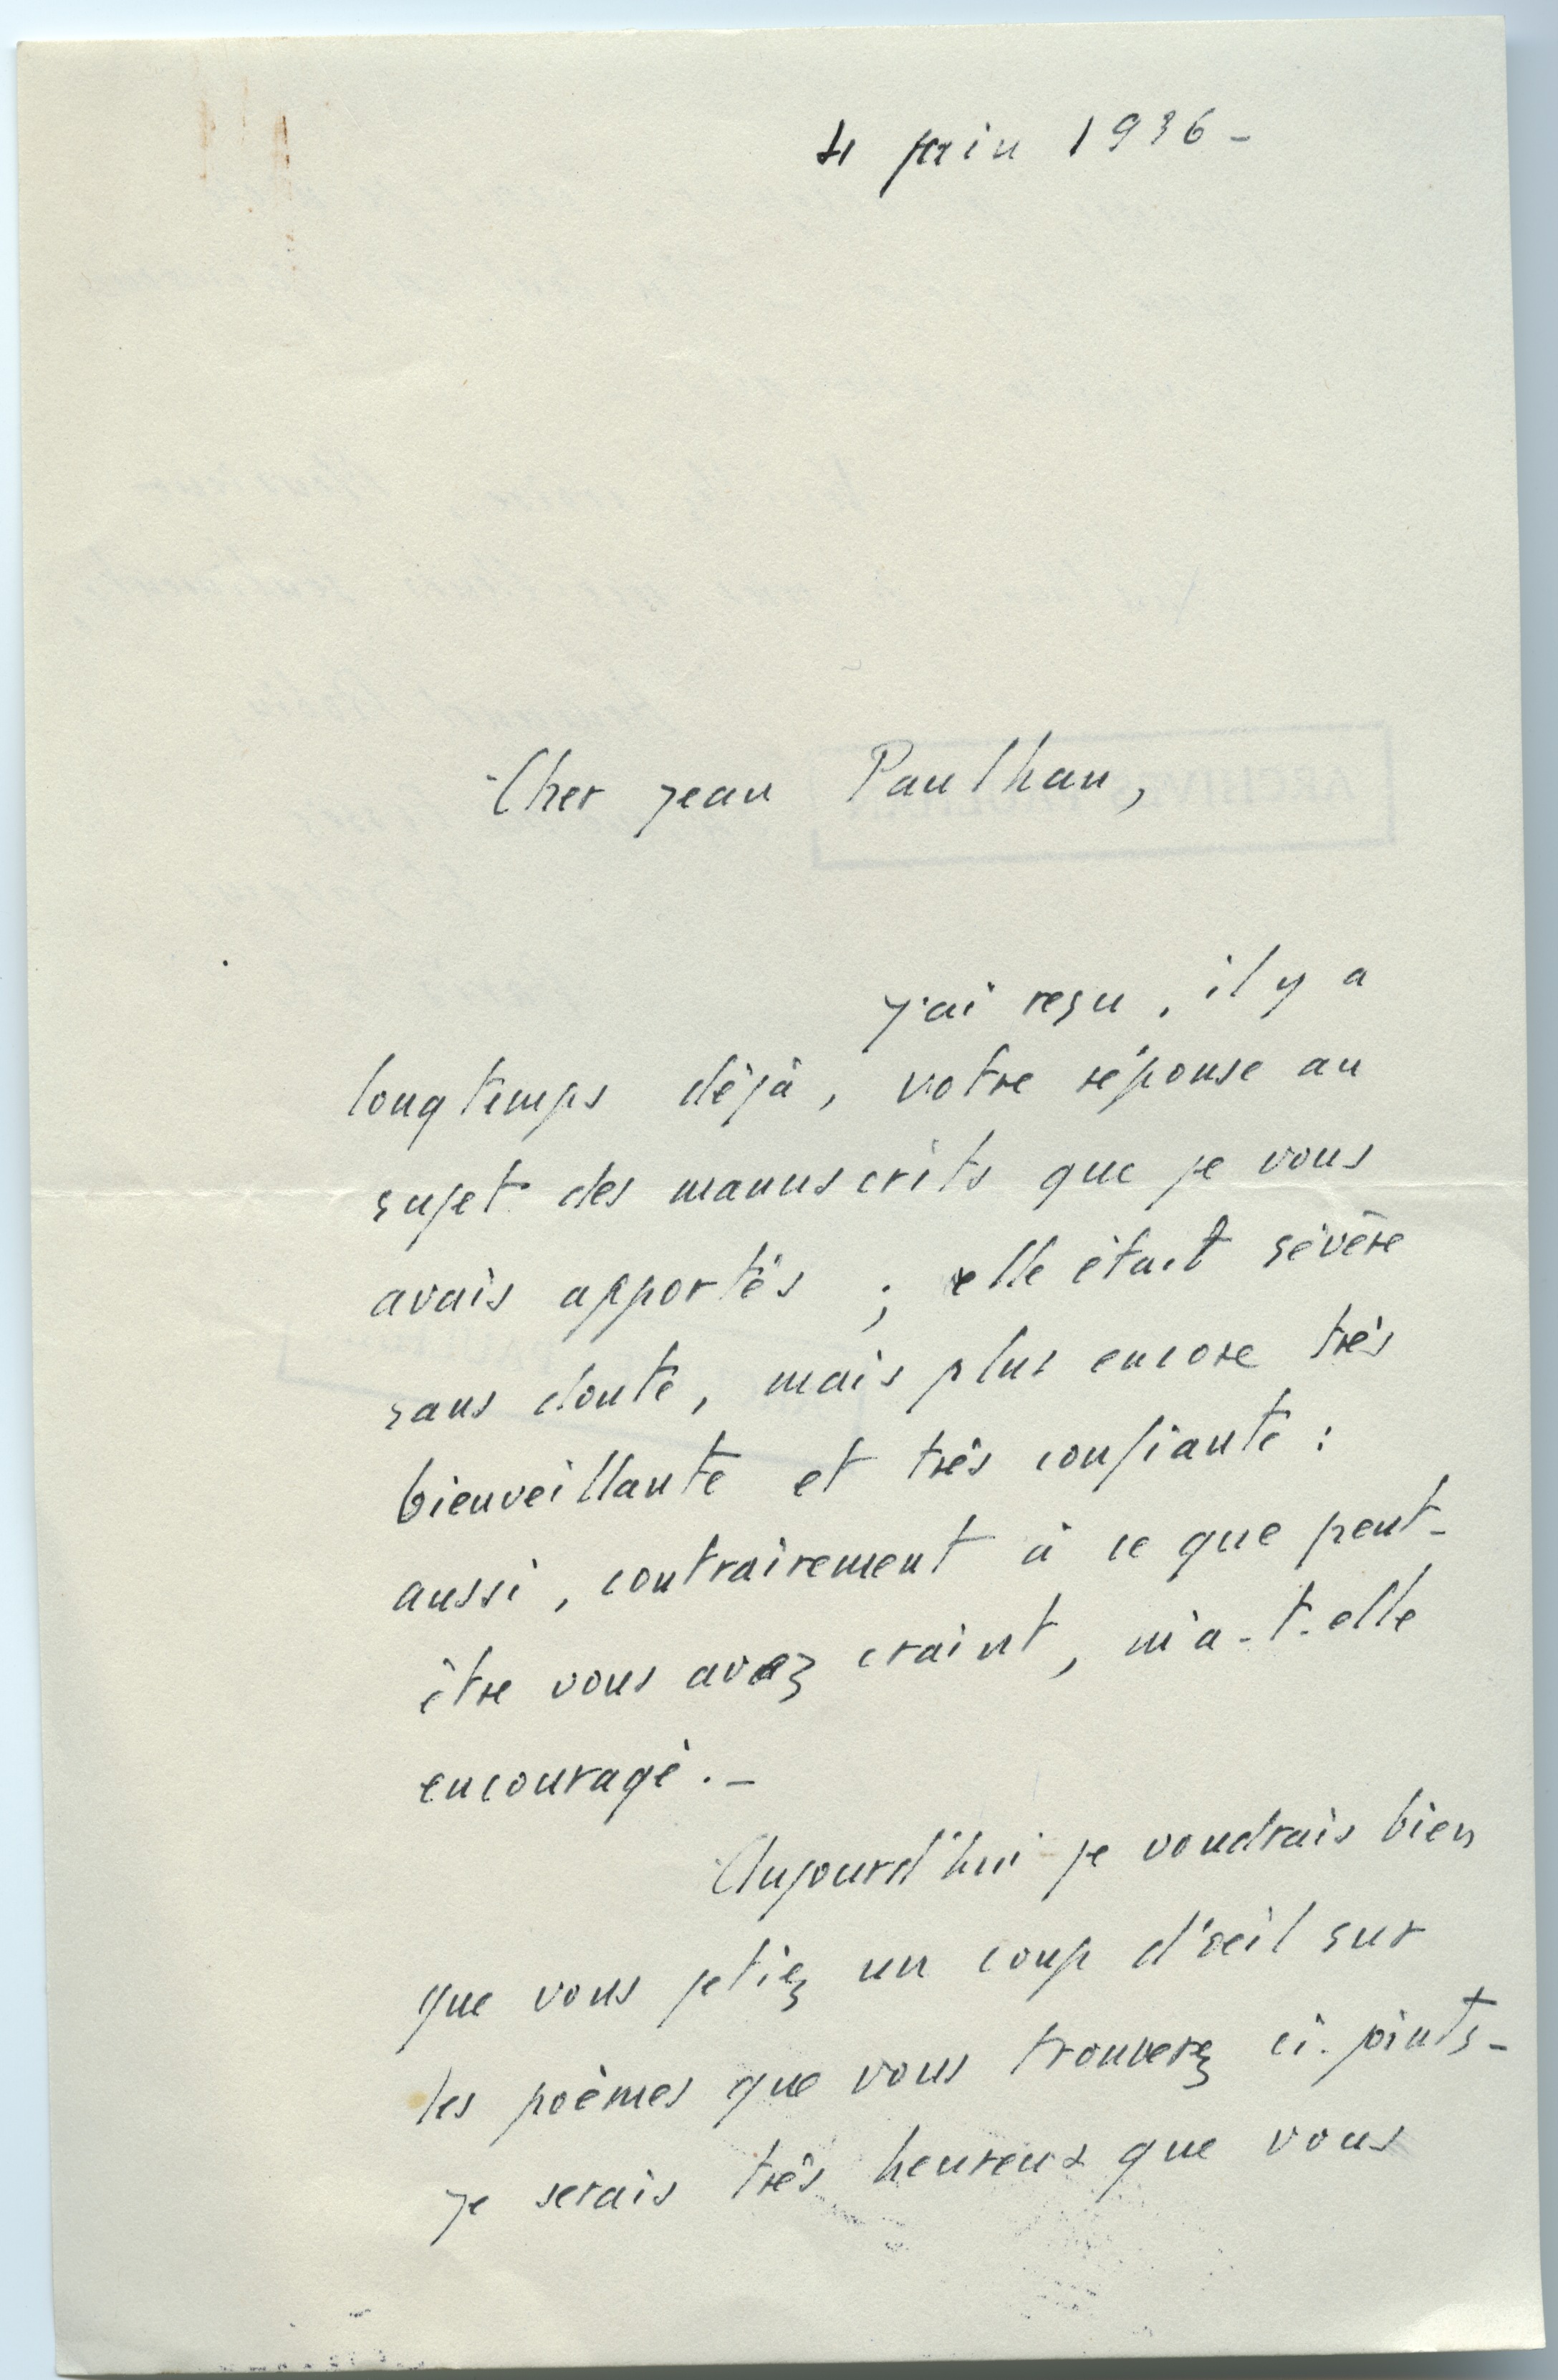 4 juin 1936 -
Cher Jean Paulhan,
J'ai reçu, il y a
longtemps déjà, votre réponse au
sujet des manuscrits que je vous
avais apportés ; elle était sévère
sans doute, mais plus encore très
bienveillante et très confiante :
aussi, contrairement à ce que peut-
être vous avez craint, m'a-t-elle
encouragé. -
Aujourd'hui je voudrais bien
que vous jetiez un coup d'œil sur
les poèmes que vous trouverez ci-joints -
Je serais très heureux que vous